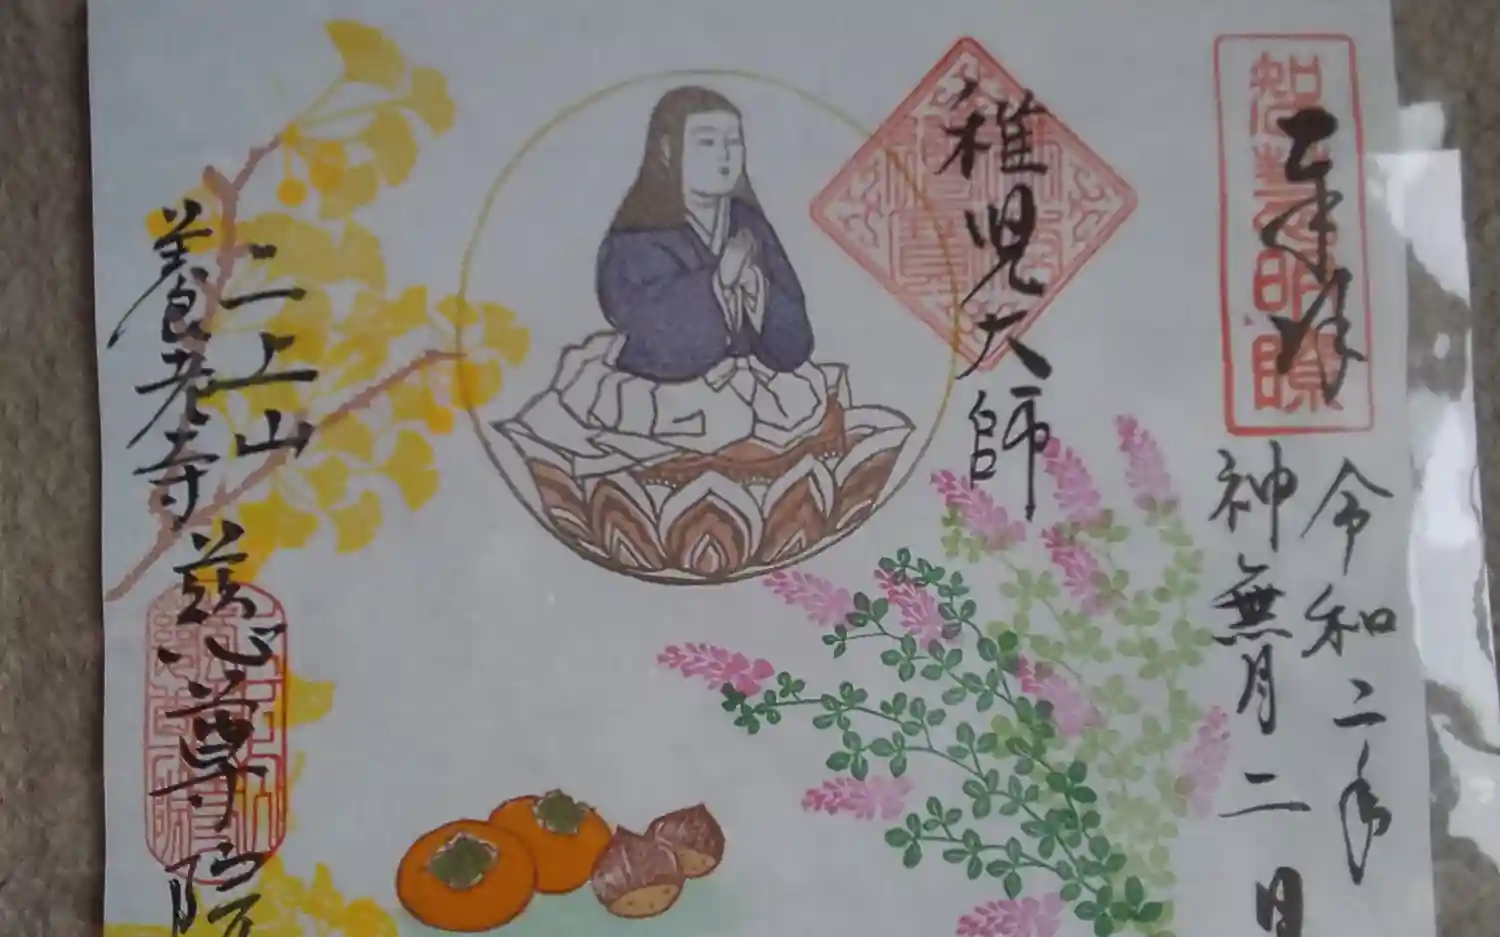 奉拝
令和二年
神無月二日
稚児大師
二上山
養老寺
慈心尊院